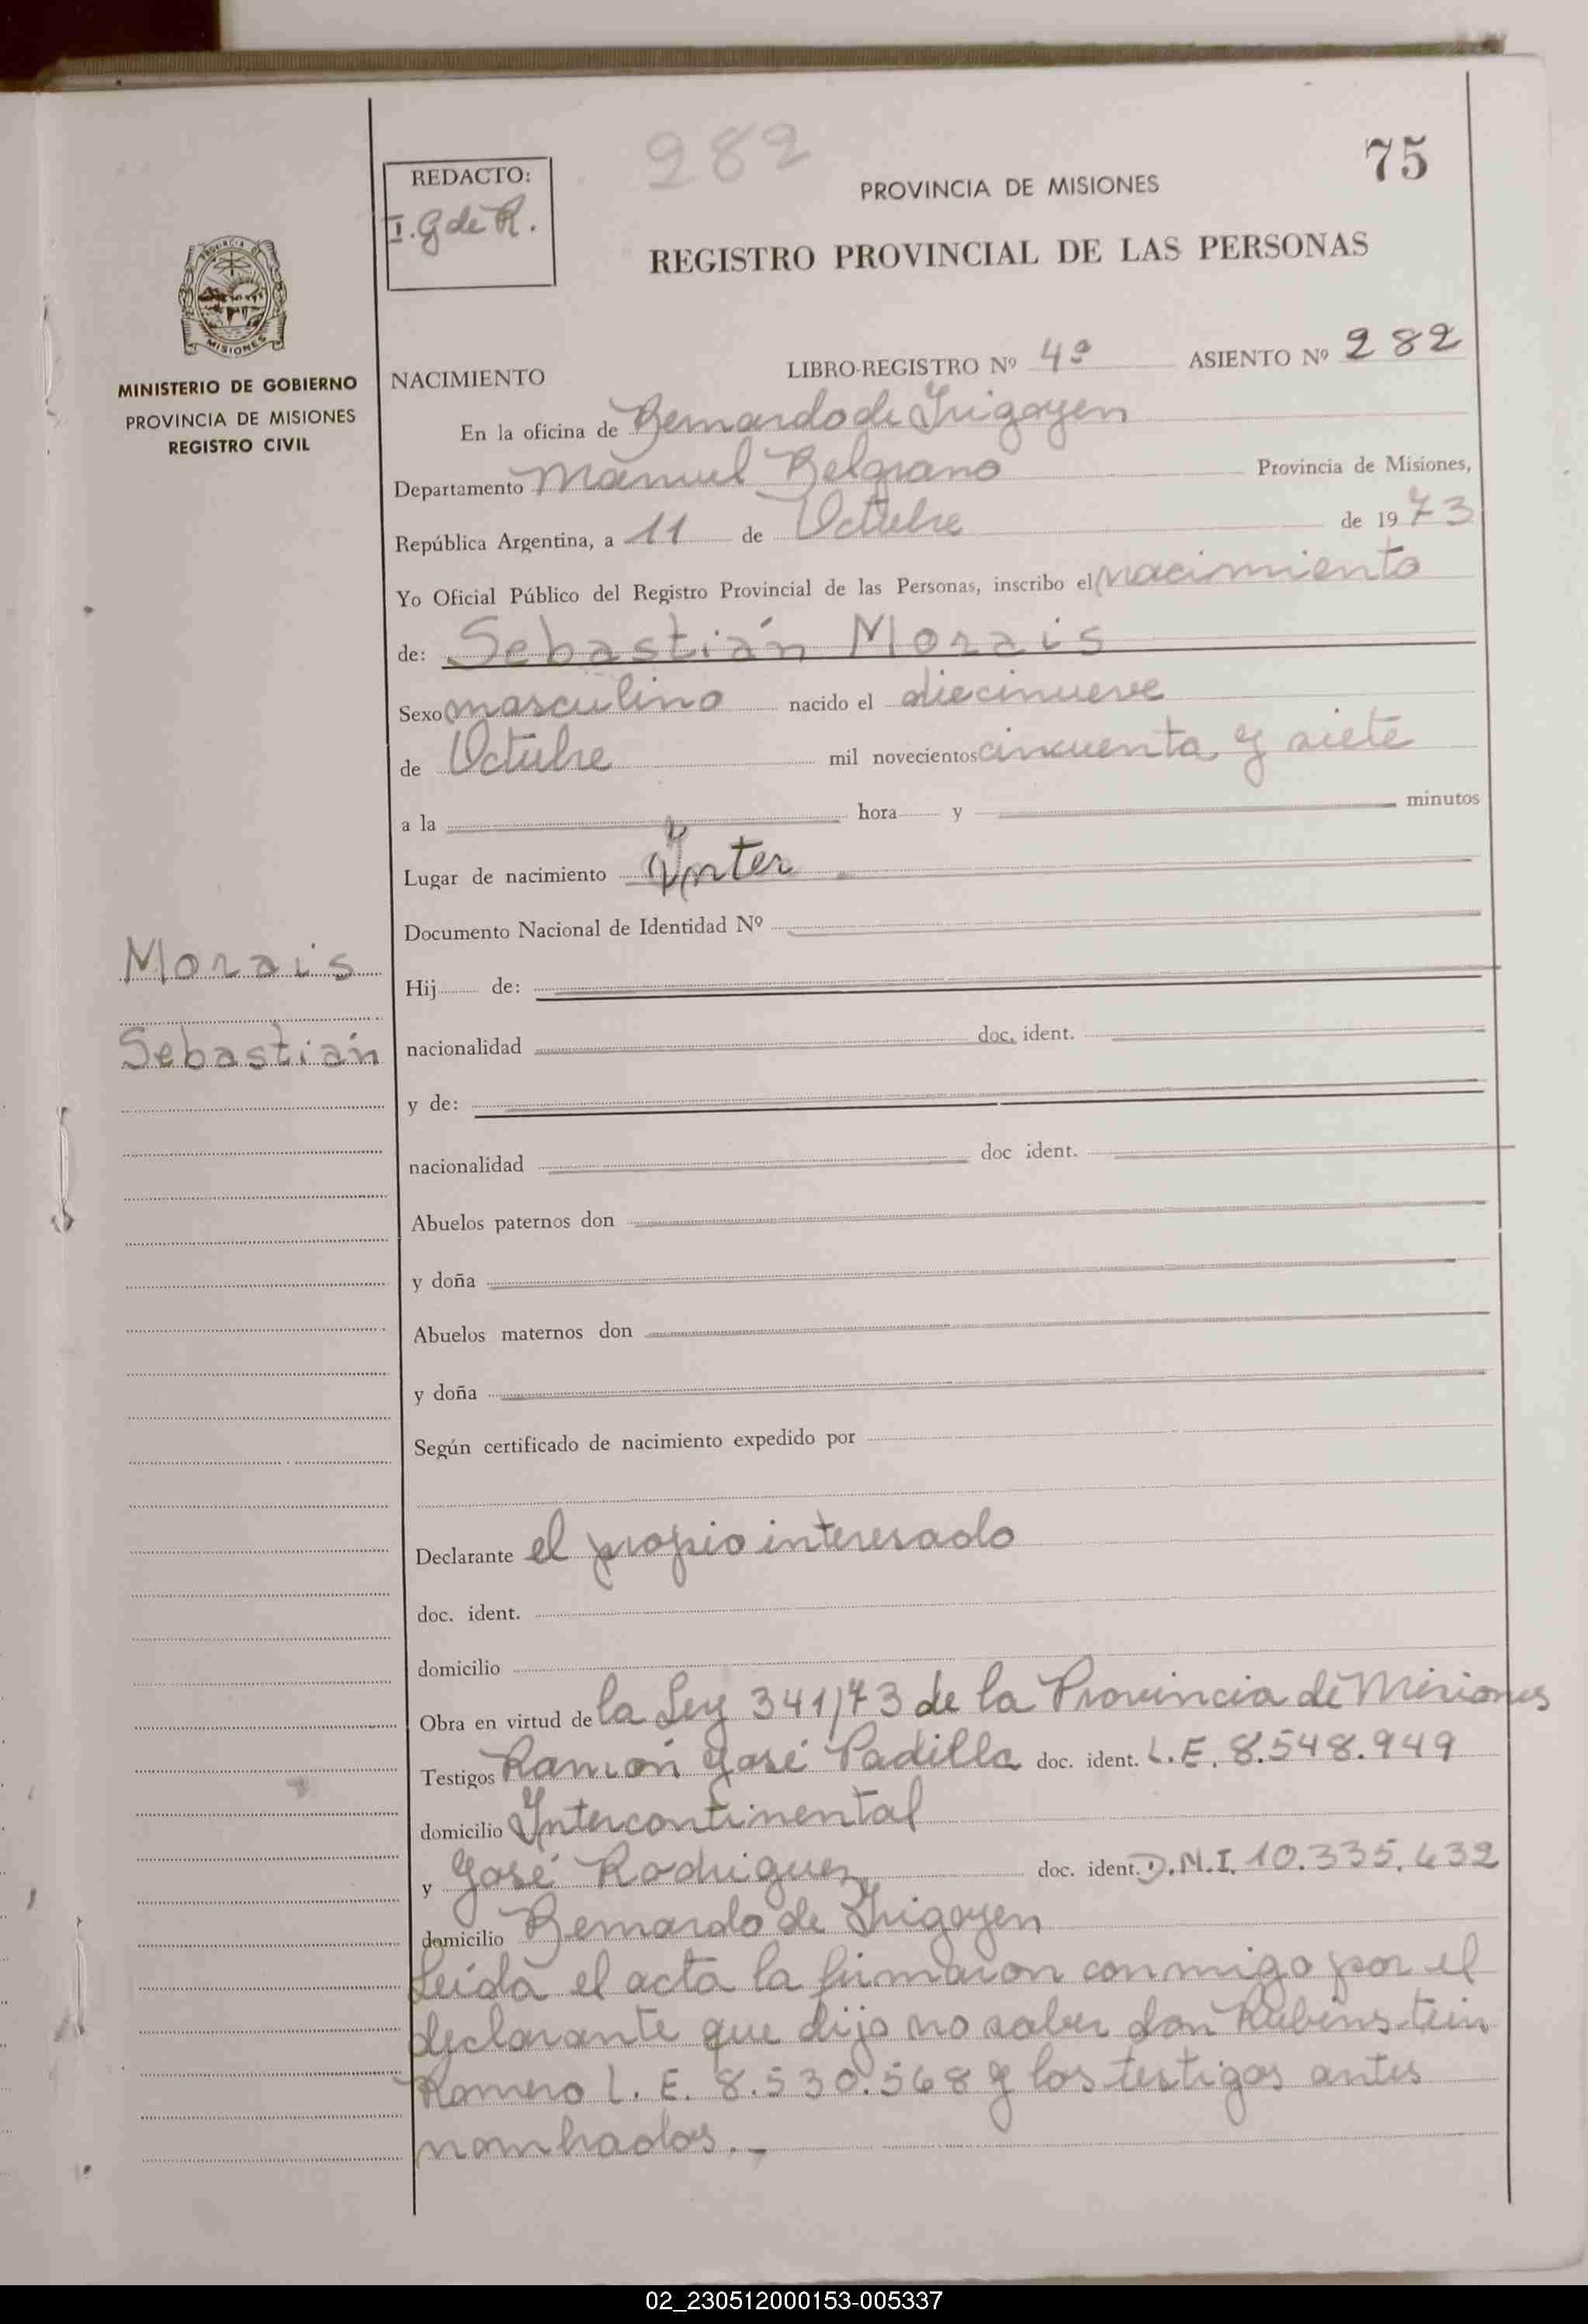 282
75
REDACTO:
I. G de R.
PROVINCIA DE MISIONES
REGISTRO PROVINCIAL DE LAS PERSONAS
PROVINCIA DE
MISIONES
MINISTERIO DE GOBIERNO
PROVINCIA DE MISIONES
REGISTRO CIVIL
NACIMIENTO LIBRO-REGISTRO Nº 4º ASIENTO Nº 282
En la oficina de Bernardo de Irigoyen
Departamento Manuel Belgrano Provincia de Misiones,
República Argentina, a 11 de Octubre de 1973
Yo Oficial Público del Registro Provincial de las Personas, inscribo el nacimiento
de: Sebastián Morais
Sexo masculino nacido el diecinueve
de Octubre mil novecientos cincuenta y siete
a la hora y minutos
Lugar de nacimiento Inter
Documento Nacional de Identidad Nº
Morais
Hij de:
Sebastián
nacionalidad doc. ident.
y de:
nacionalidad doc ident.
Abuelos paternos don
y doña
Abuelos maternos don
y doña
Según certificado de nacimiento expedido por
Declarante el propio interesado
doc. ident.
domicilio
Obra en virtud de la Ley 341/73 de la Provincia de Misiones
Testigos Ramón José Padilla doc. ident. L.E. 8.548.949
domicilio Intercontinental
y José Rodriguez doc. ident. D.N.I. 10.335.432
domicilio Bernardo de Irigoyen
Leída el acta la firmaron conmigo por el
declarante que dijo no saber don Rubinstein
Romero L. E. 8.530.568 y los testigos antes
nombrados.-
02_230512000153-005337